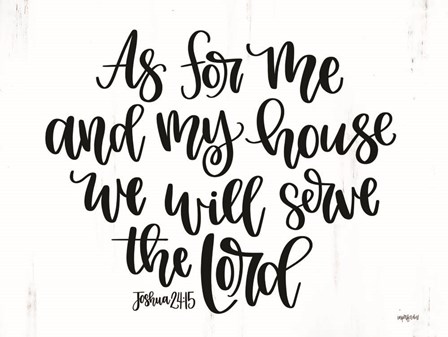 As for me
and my house
we will serve
the Lord
Joshua 24:15